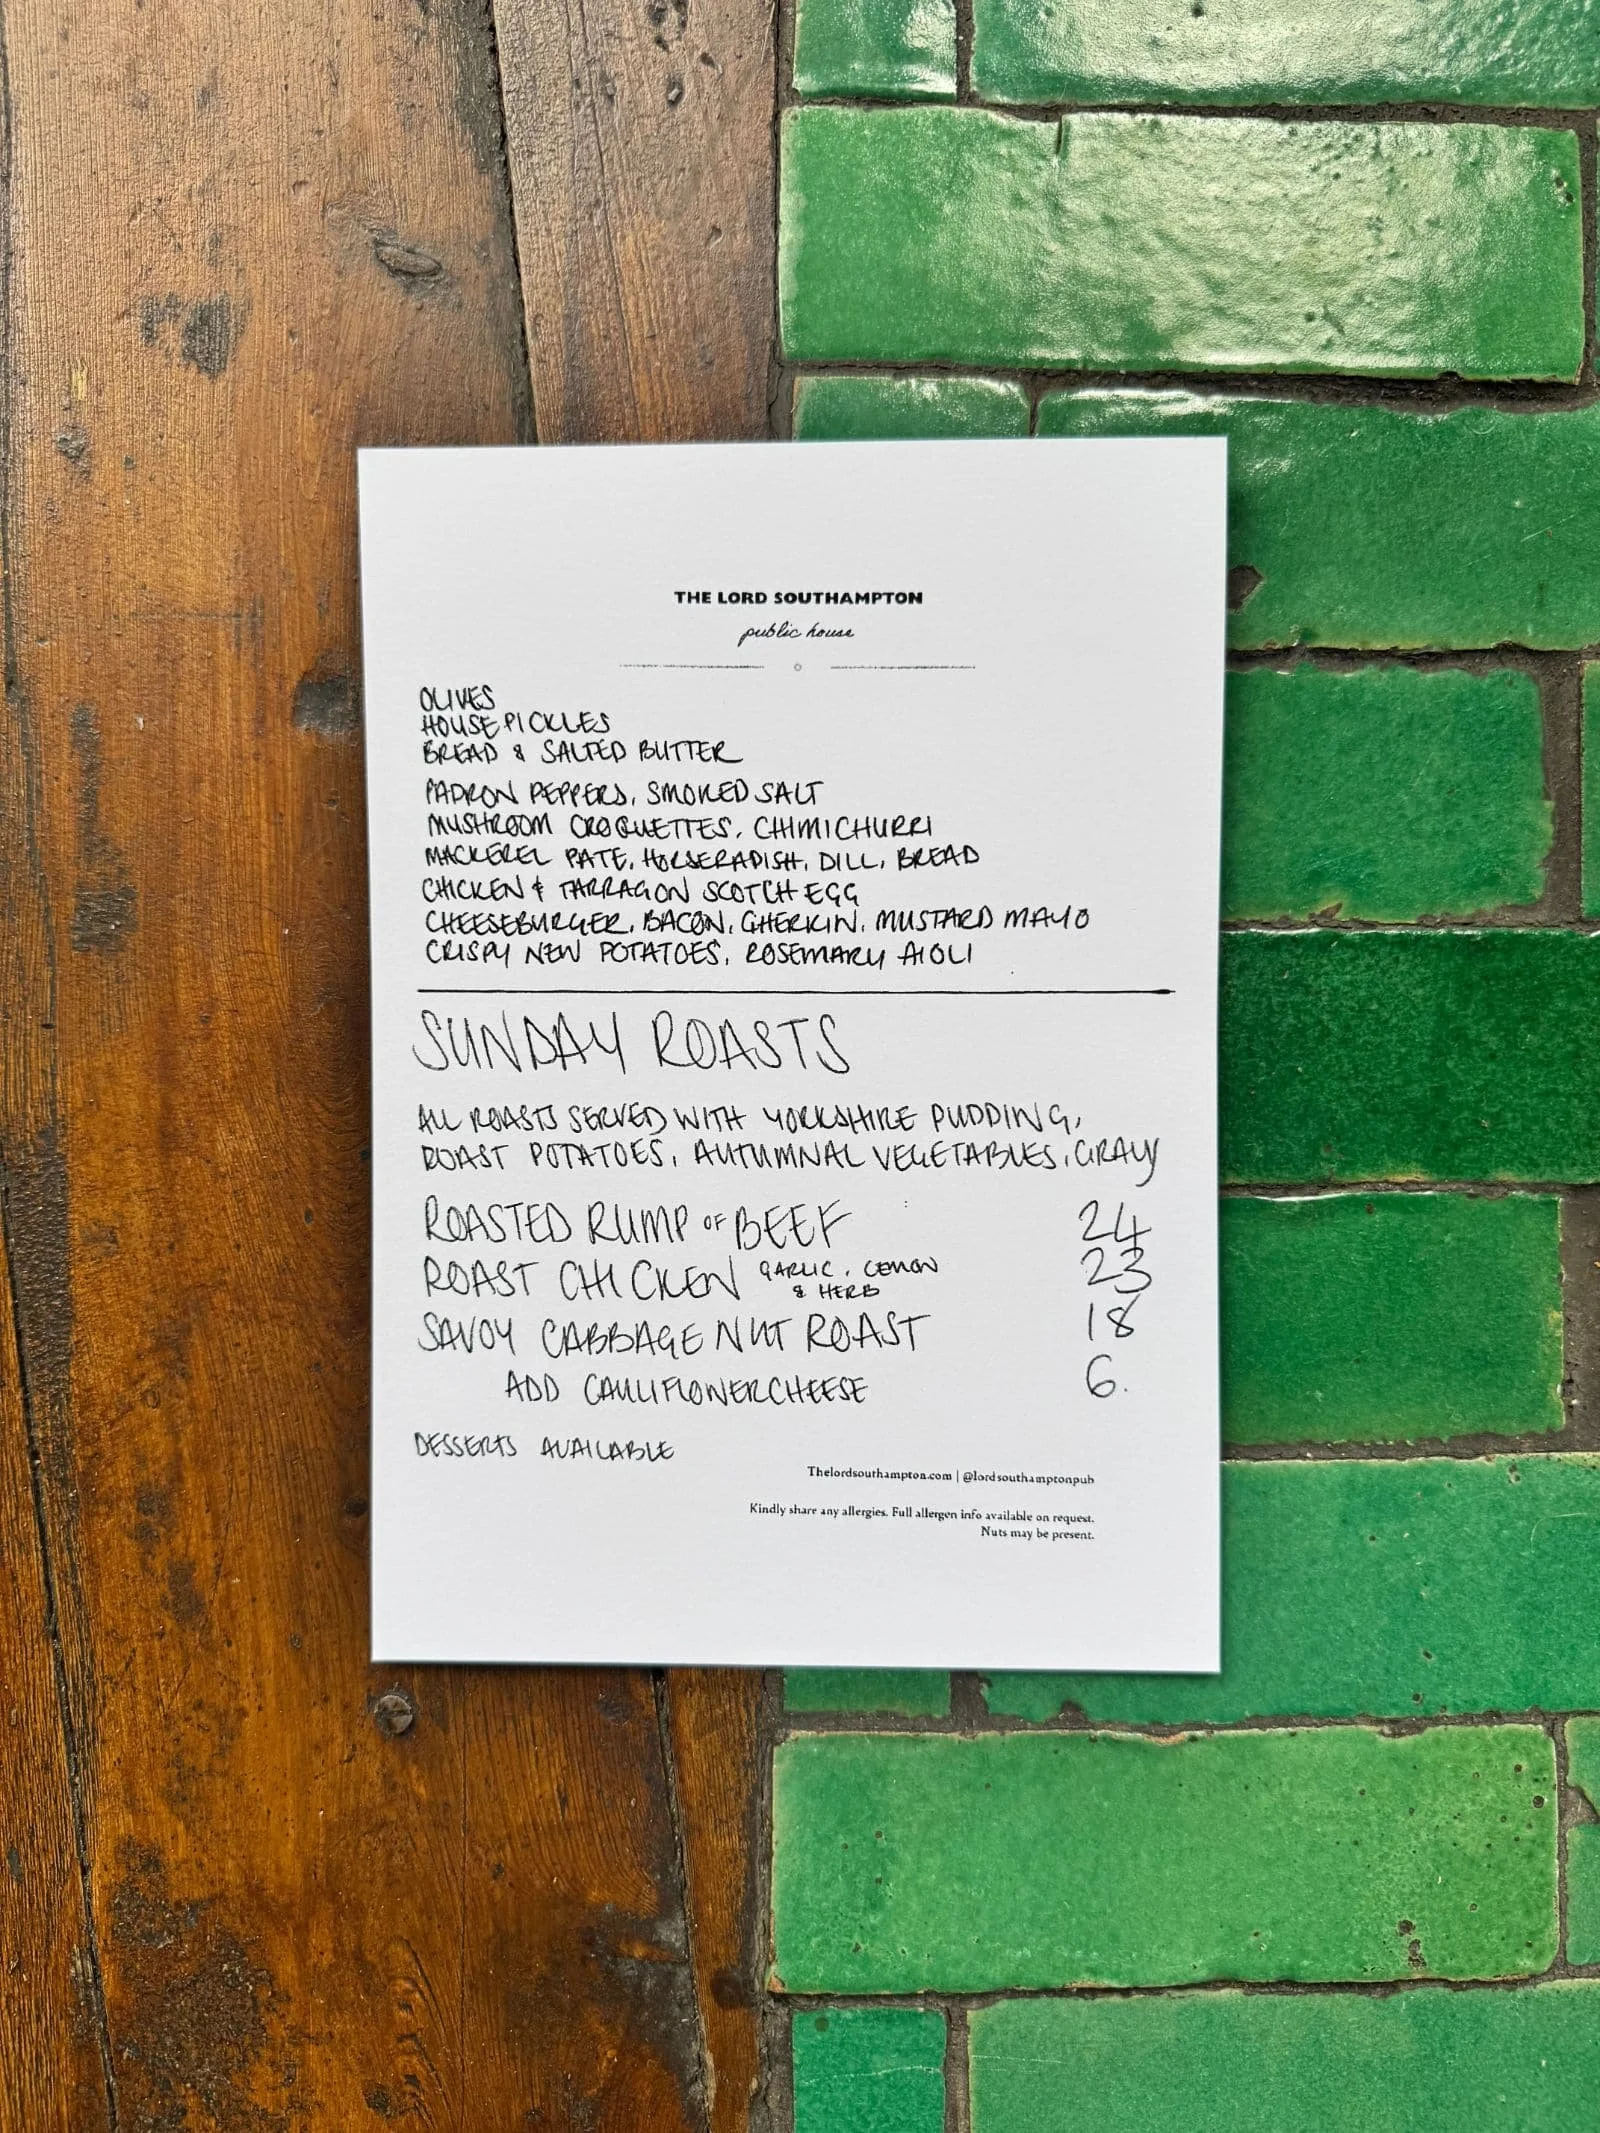 THE LORD SOUTHAMPTON
public house
OLIVES
HOUSE PICKLES
BREAD & SALTED BUTTER
PADRON PEPPERS, SMOKED SALT
MUSHROOM CROQUETTES, CHIMICHURRI
MACKEREL PATE, HORSERADISH, DILL, BREAD
CHICKEN & TARRAGON SCOTCH EGG
CHEESEBURGER, BACON, GHERKIN, MUSTARD MAYO
CRISPY NEW POTATOES, ROSEMARY AIOLI
SUNDAY ROASTS
ALL ROASTS SERVED WITH YORKSHIRE PUDDING,
ROAST POTATOES, AUTUMNAL VEGETABLES, GRAVY
ROASTED RUMP OF BEEF 24
ROAST CHICKEN GARLIC, LEMON 23
& HERB
SAVOY CABBAGE NUT ROAST 18
ADD CAULIFLOWER CHEESE 6.
DESSERTS AVAILABLE
Thelordsouthampton.com | @lordsouthamptonpub
Kindly share any allergies. Full allergen info available on request.
Nuts may be present.